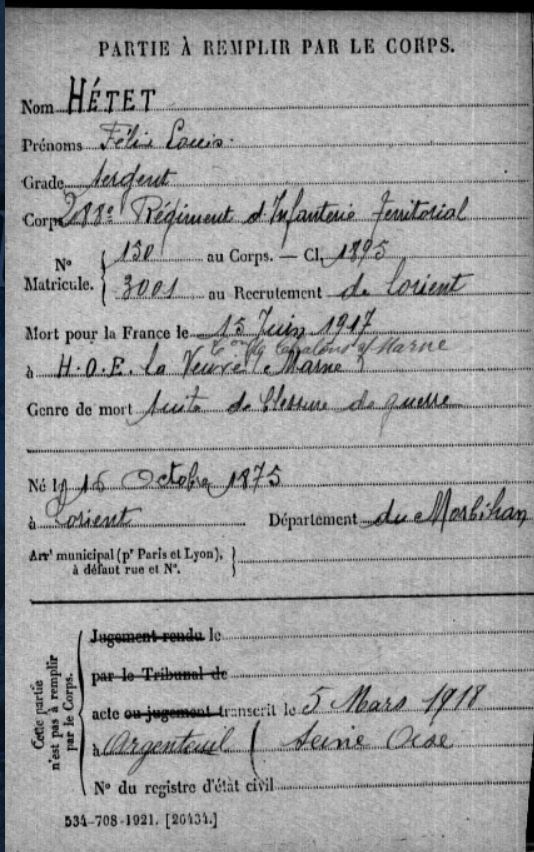 PARTIE À REMPLIR PAR LE CORPS.
Nom HÉTET
Prénoms Félix Louis
Grade Sergent
Corps 288e Régiment d'Infanterie Territorial
N° Matricule. { 130 au Corps. — Cl. 1895
3001 au Recrutement de Lorient
Mort pour la France le 15 Juin 1917
Chalons s/ Marne
à H.O.E. la Veuve (Marne)
Genre de mort suite de blessure de guerre
Né le 16 Octobre 1875
à Lorient Département du Morbihan
Arrt municipal (pr Paris et Lyon), }
à défaut rue et N°.
Cette partie n'est pas à remplir par le Corps.
Jugement rendu le
par le Tribunal de
acte ou jugement transcrit le 5 Mars 1918
à Argenteuil ( Seine Oise
N° du registre d'état civil
534-708-1921. [26434.]